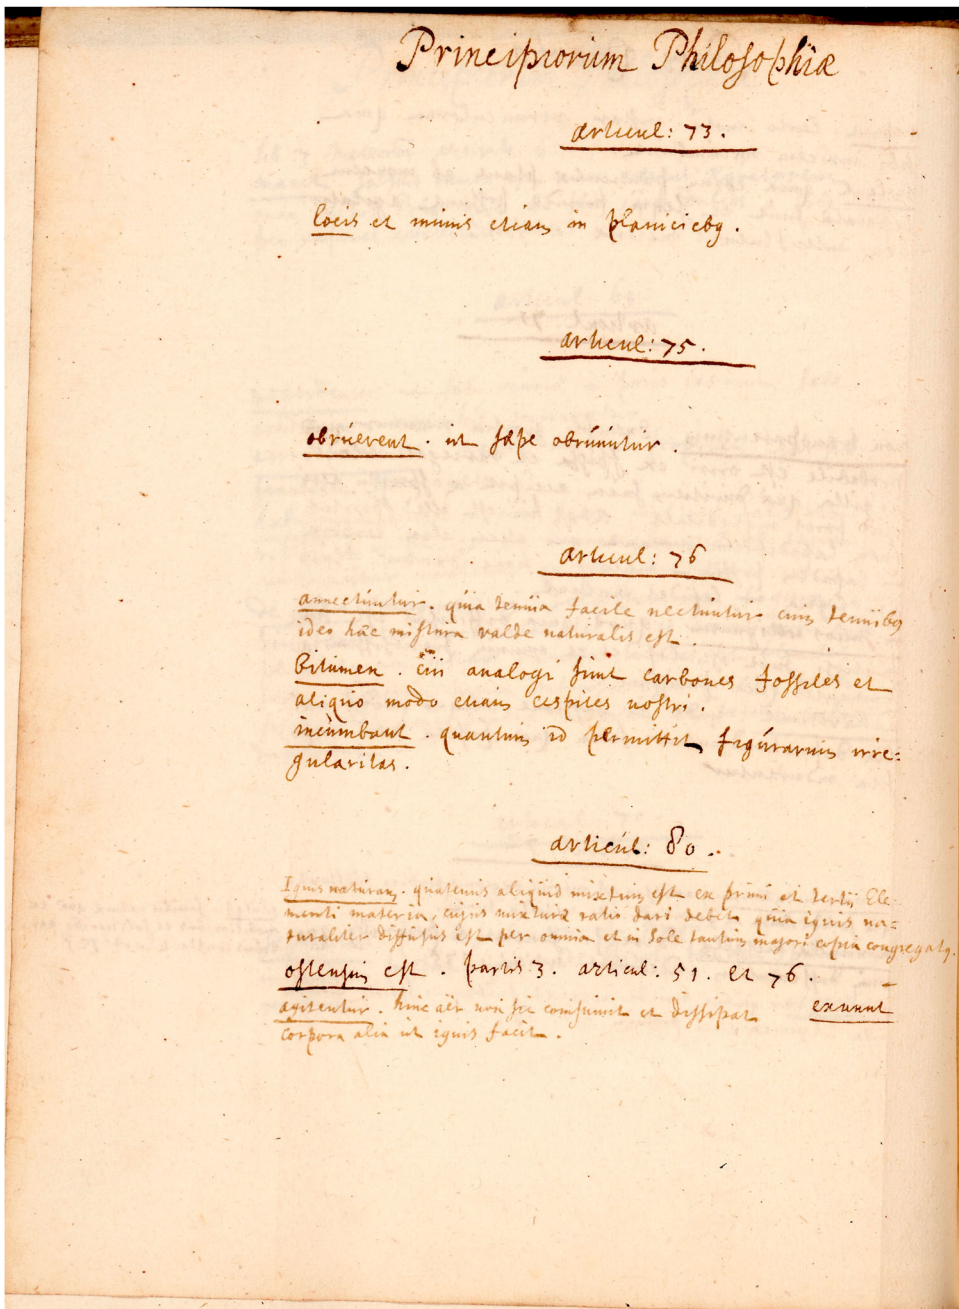 Principiorum Philosophiæ
articul: 73.
locis et minus etiam in planiciebq.
articul: 75.
obruerent. ut sæpe obruuntur.
articul: 76
annectuntur. quia tenuia facile nectuntur cum tenuibq
ideo hæc mistura valde naturalis est.
bitumen. cui analogi sunt carbones fossiles et
aliquo modo etiam cespites nostri.
incumbant. quantum id permittit figurarum irre-
gularitas.
articul: 80.
Ignis naturam. quatenus aliquid mixtum est ex primi et tertij Ele-
menti materia, cujus mixturæ ratio dari debet, quia ignis na-
turaliter diffusus est per omnia et in Sole tantum majori copia congregatq.
ostensum est. partis 3. articul: 51. et 76.
agitentur. hinc aër non sic consumit et dissipat
corpora alia ut ignis facit.
exeunt